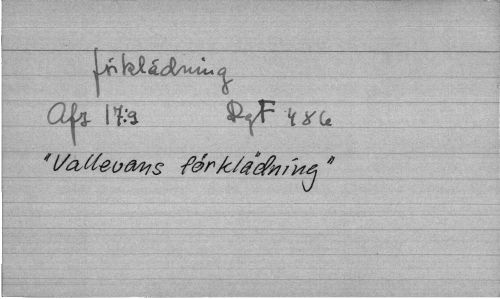 förklädning
Afz 17:9 DgF 486
"Vallevans förklädning"